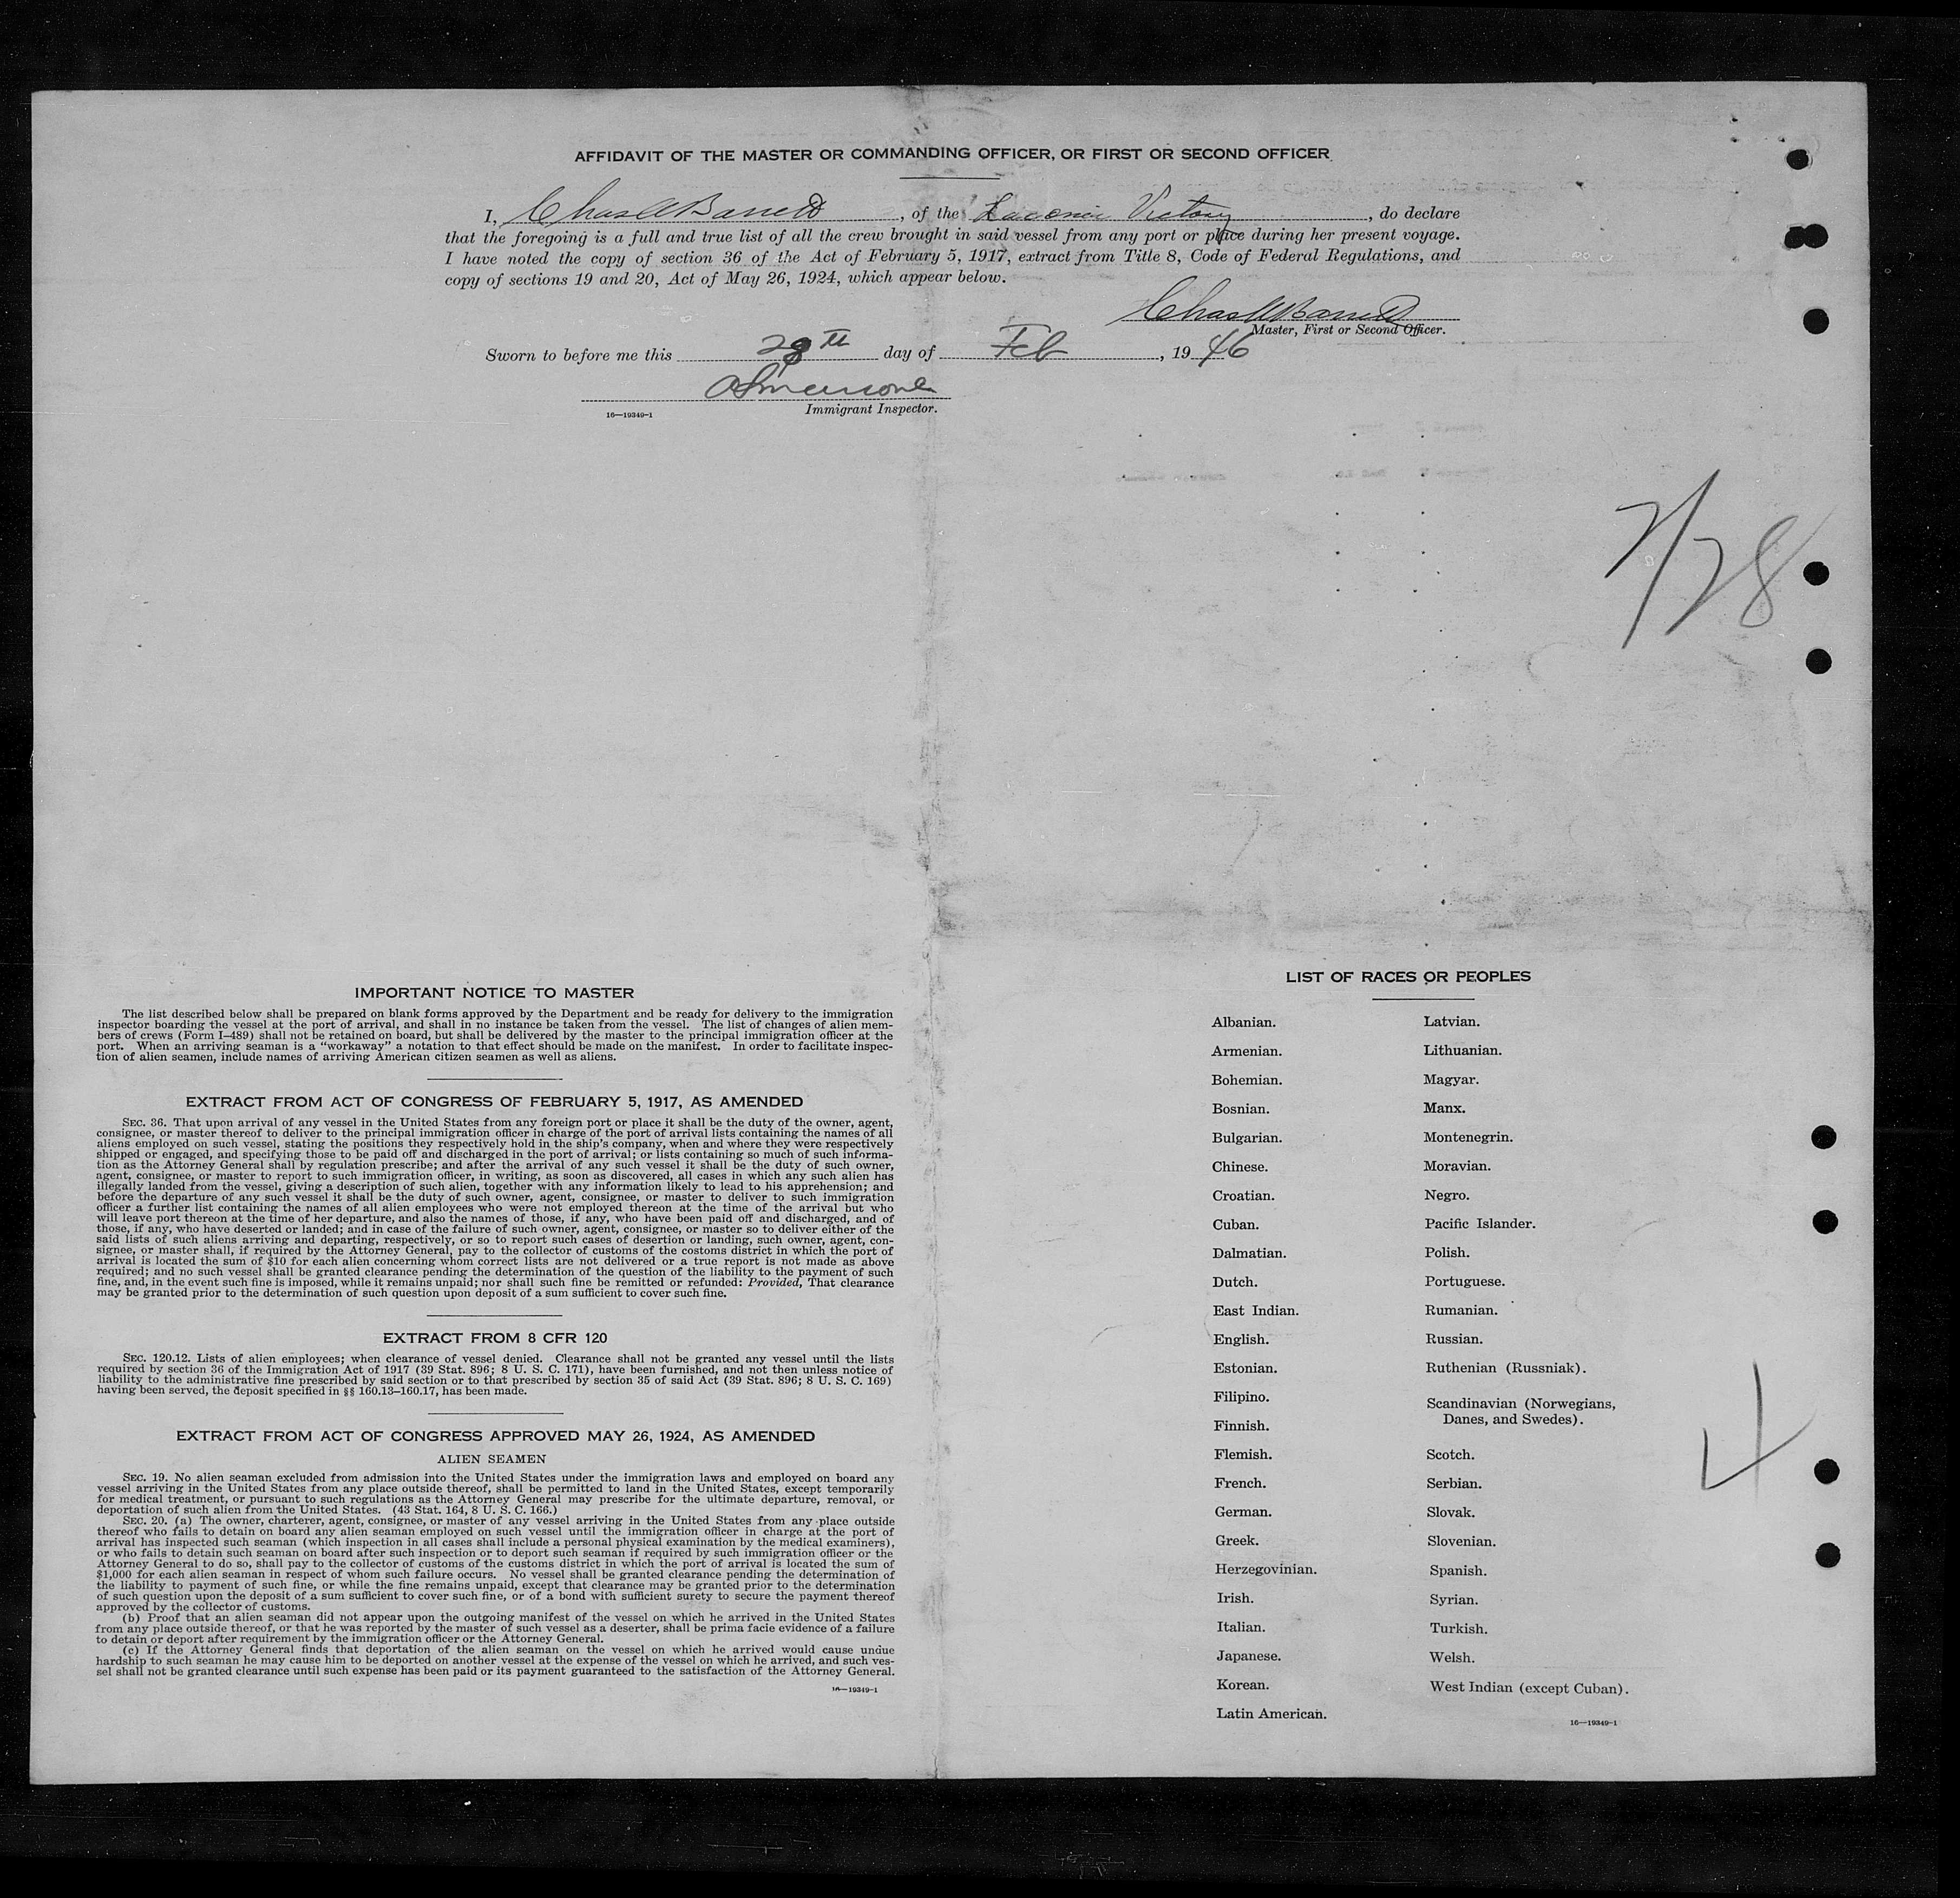 AFFIDAVIT OF THE MASTER OR COMMANDING OFFICER, OR FIRST OR SECOND OFFICER
I, Chas A Barrett, of the Laconia Victory, do declare
that the foregoing is a full and true list of all the crew brought in said vessel from any port or place during her present voyage.
I have noted the copy of section 36 of the Act of February 5, 1917, extract from Title 8, Code of Federal Regulations, and
copy of sections 19 and 20, Act of May 26, 1924, which appear below.
Chas A Barrett
Master, First or Second Officer.
Sworn to before me this 28th day of Feb, 1946
16—19349-1 Immigrant Inspector.
2/28
IMPORTANT NOTICE TO MASTER
The list described below shall be prepared on blank forms approved by the Department and be ready for delivery to the immigration
inspector boarding the vessel at the port of arrival, and shall in no instance be taken from the vessel. The list of changes of alien mem-
bers of crews (Form I-489) shall not be retained on board, but shall be delivered by the master to the principal immigration officer at the
port. When an arriving seaman is a "workaway" a notation to that effect should be made on the manifest. In order to facilitate inspec-
tion of alien seamen, include names of arriving American citizen seamen as well as aliens.
EXTRACT FROM ACT OF CONGRESS OF FEBRUARY 5, 1917, AS AMENDED
SEC. 36. That upon arrival of any vessel in the United States from any foreign port or place it shall be the duty of the owner, agent,
consignee, or master thereof to deliver to the principal immigration officer in charge of the port of arrival lists containing the names of all
aliens employed on such vessel, stating the positions they respectively hold in the ship's company, when and where they were respectively
shipped or engaged, and specifying those to be paid off and discharged in the port of arrival; or lists containing so much of such informa-
tion as the Attorney General shall by regulation prescribe; and after the arrival of any such vessel it shall be the duty of such owner,
agent, consignee, or master to report to such immigration officer, in writing, as soon as discovered, all cases in which any such alien has
illegally landed from the vessel, giving a description of such alien, together with any information likely to lead to his apprehension; and
before the departure of any such vessel it shall be the duty of such owner, agent, consignee, or master to deliver to such immigration
officer a further list containing the names of all alien employees who were not employed thereon at the time of the arrival but who
will leave port thereon at the time of her departure, and also the names of those, if any, who have been paid off and discharged, and of
those, if any, who have deserted or landed; and in case of the failure of such owner, agent, consignee, or master so to deliver either of the
said lists of such aliens arriving and departing, respectively, or so to report such cases of desertion or landing, such owner, agent, con-
signee, or master shall, if required by the Attorney General, pay to the collector of customs of the costoms district in which the port of
arrival is located the sum of $10 for each alien concerning whom correct lists are not delivered or a true report is not made as above
required; and no such vessel shall be granted clearance pending the determination of the question of the liability to the payment of such
fine, and, in the event such fine is imposed, while it remains unpaid; nor shall such fine be remitted or refunded: Provided, That clearance
may be granted prior to the determination of such question upon deposit of a sum sufficient to cover such fine.
EXTRACT FROM 8 CFR 120
SEC. 120.12. Lists of alien employees; when clearance of vessel denied. Clearance shall not be granted any vessel until the lists
required by section 36 of the Immigration Act of 1917 (39 Stat. 896; 8 U. S. C. 171), have been furnished, and not then unless notice of
liability to the administrative fine prescribed by said section or to that prescribed by section 35 of said Act (39 Stat. 896; 8 U. S. C. 169)
having been served, the deposit specified in §§ 160.13-160.17, has been made.
EXTRACT FROM ACT OF CONGRESS APPROVED MAY 26, 1924, AS AMENDED
ALIEN SEAMEN
SEC. 19. No alien seaman excluded from admission into the United States under the immigration laws and employed on board any
vessel arriving in the United States from any place outside thereof, shall be permitted to land in the United States, except temporarily
for medical treatment, or pursuant to such regulations as the Attorney General may prescribe for the ultimate departure, removal, or
deportation of such alien from the United States. (43 Stat. 164, 8 U. S. C. 166.)
SEC. 20. (a) The owner, charterer, agent, consignee, or master of any vessel arriving in the United States from any place outside
thereof who fails to detain on board any alien seaman employed on such vessel until the immigration officer in charge at the port of
arrival has inspected such seaman (which inspection in all cases shall include a personal physical examination by the medical examiners),
or who fails to detain such seaman on board after such inspection or to deport such seaman if required by such immigration officer or the
Attorney General to do so, shall pay to the collector of customs of the customs district in which the port of arrival is located the sum of
$1,000 for each alien seaman in respect of whom such failure occurs. No vessel shall be granted clearance pending the determination of
the liability to payment of such fine, or while the fine remains unpaid, except that clearance may be granted prior to the determination
of such question upon the deposit of a sum sufficient to cover such fine, or of a bond with sufficient surety to secure the payment thereof
approved by the collector of customs.
(b) Proof that an alien seaman did not appear upon the outgoing manifest of the vessel on which he arrived in the United States
from any place outside thereof, or that he was reported by the master of such vessel as a deserter, shall be prima facie evidence of a failure
to detain or deport after requirement by the immigration officer or the Attorney General.
(c) If the Attorney General finds that deportation of the alien seaman on the vessel on which he arrived would cause undue
hardship to such seaman he may cause him to be deported on another vessel at the expense of the vessel on which he arrived, and such ves-
sel shall not be granted clearance until such expense has been paid or its payment guaranteed to the satisfaction of the Attorney General.
16—19349-1
LIST OF RACES OR PEOPLES
Albanian.
Armenian.
Bohemian.
Bosnian.
Bulgarian.
Chinese.
Croatian.
Cuban.
Dalmatian.
Dutch.
East Indian.
English.
Estonian.
Filipino.
Finnish.
Flemish.
French.
German.
Greek.
Herzegovinian.
Irish.
Italian.
Japanese.
Korean.
Latin American.
Latvian.
Lithuanian.
Magyar.
Manx.
Montenegrin.
Moravian.
Negro.
Pacific Islander.
Polish.
Portuguese.
Rumanian.
Russian.
Ruthenian (Russniak).
Scandinavian (Norwegians,
Danes, and Swedes).
Scotch.
Serbian.
Slovak.
Slovenian.
Spanish.
Syrian.
Turkish.
Welsh.
West Indian (except Cuban).
16—19349-1
4